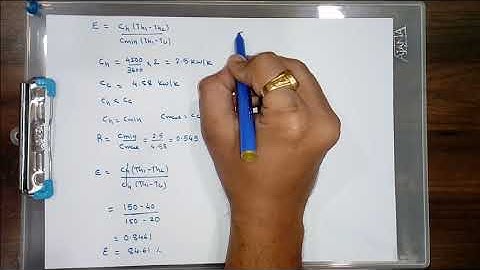 E = Ch (Th1 - Th2)
Cmin (Th1 - Tc1)
Ch = 4500/3600 × 2 = 2.5 kW/k
Cc = 4.58 kW/k
Ch < Cc
Ch = Cmin Cmax = Cc
R = Cmin/Cmax = 2.5/4.58 = 0.545
E = Ch (Th1 - Th2)
Ch (Th1 - Tc1)
= 150 - 40
150 - 20
= 0.8461
E = 84.61 %
AJANTA